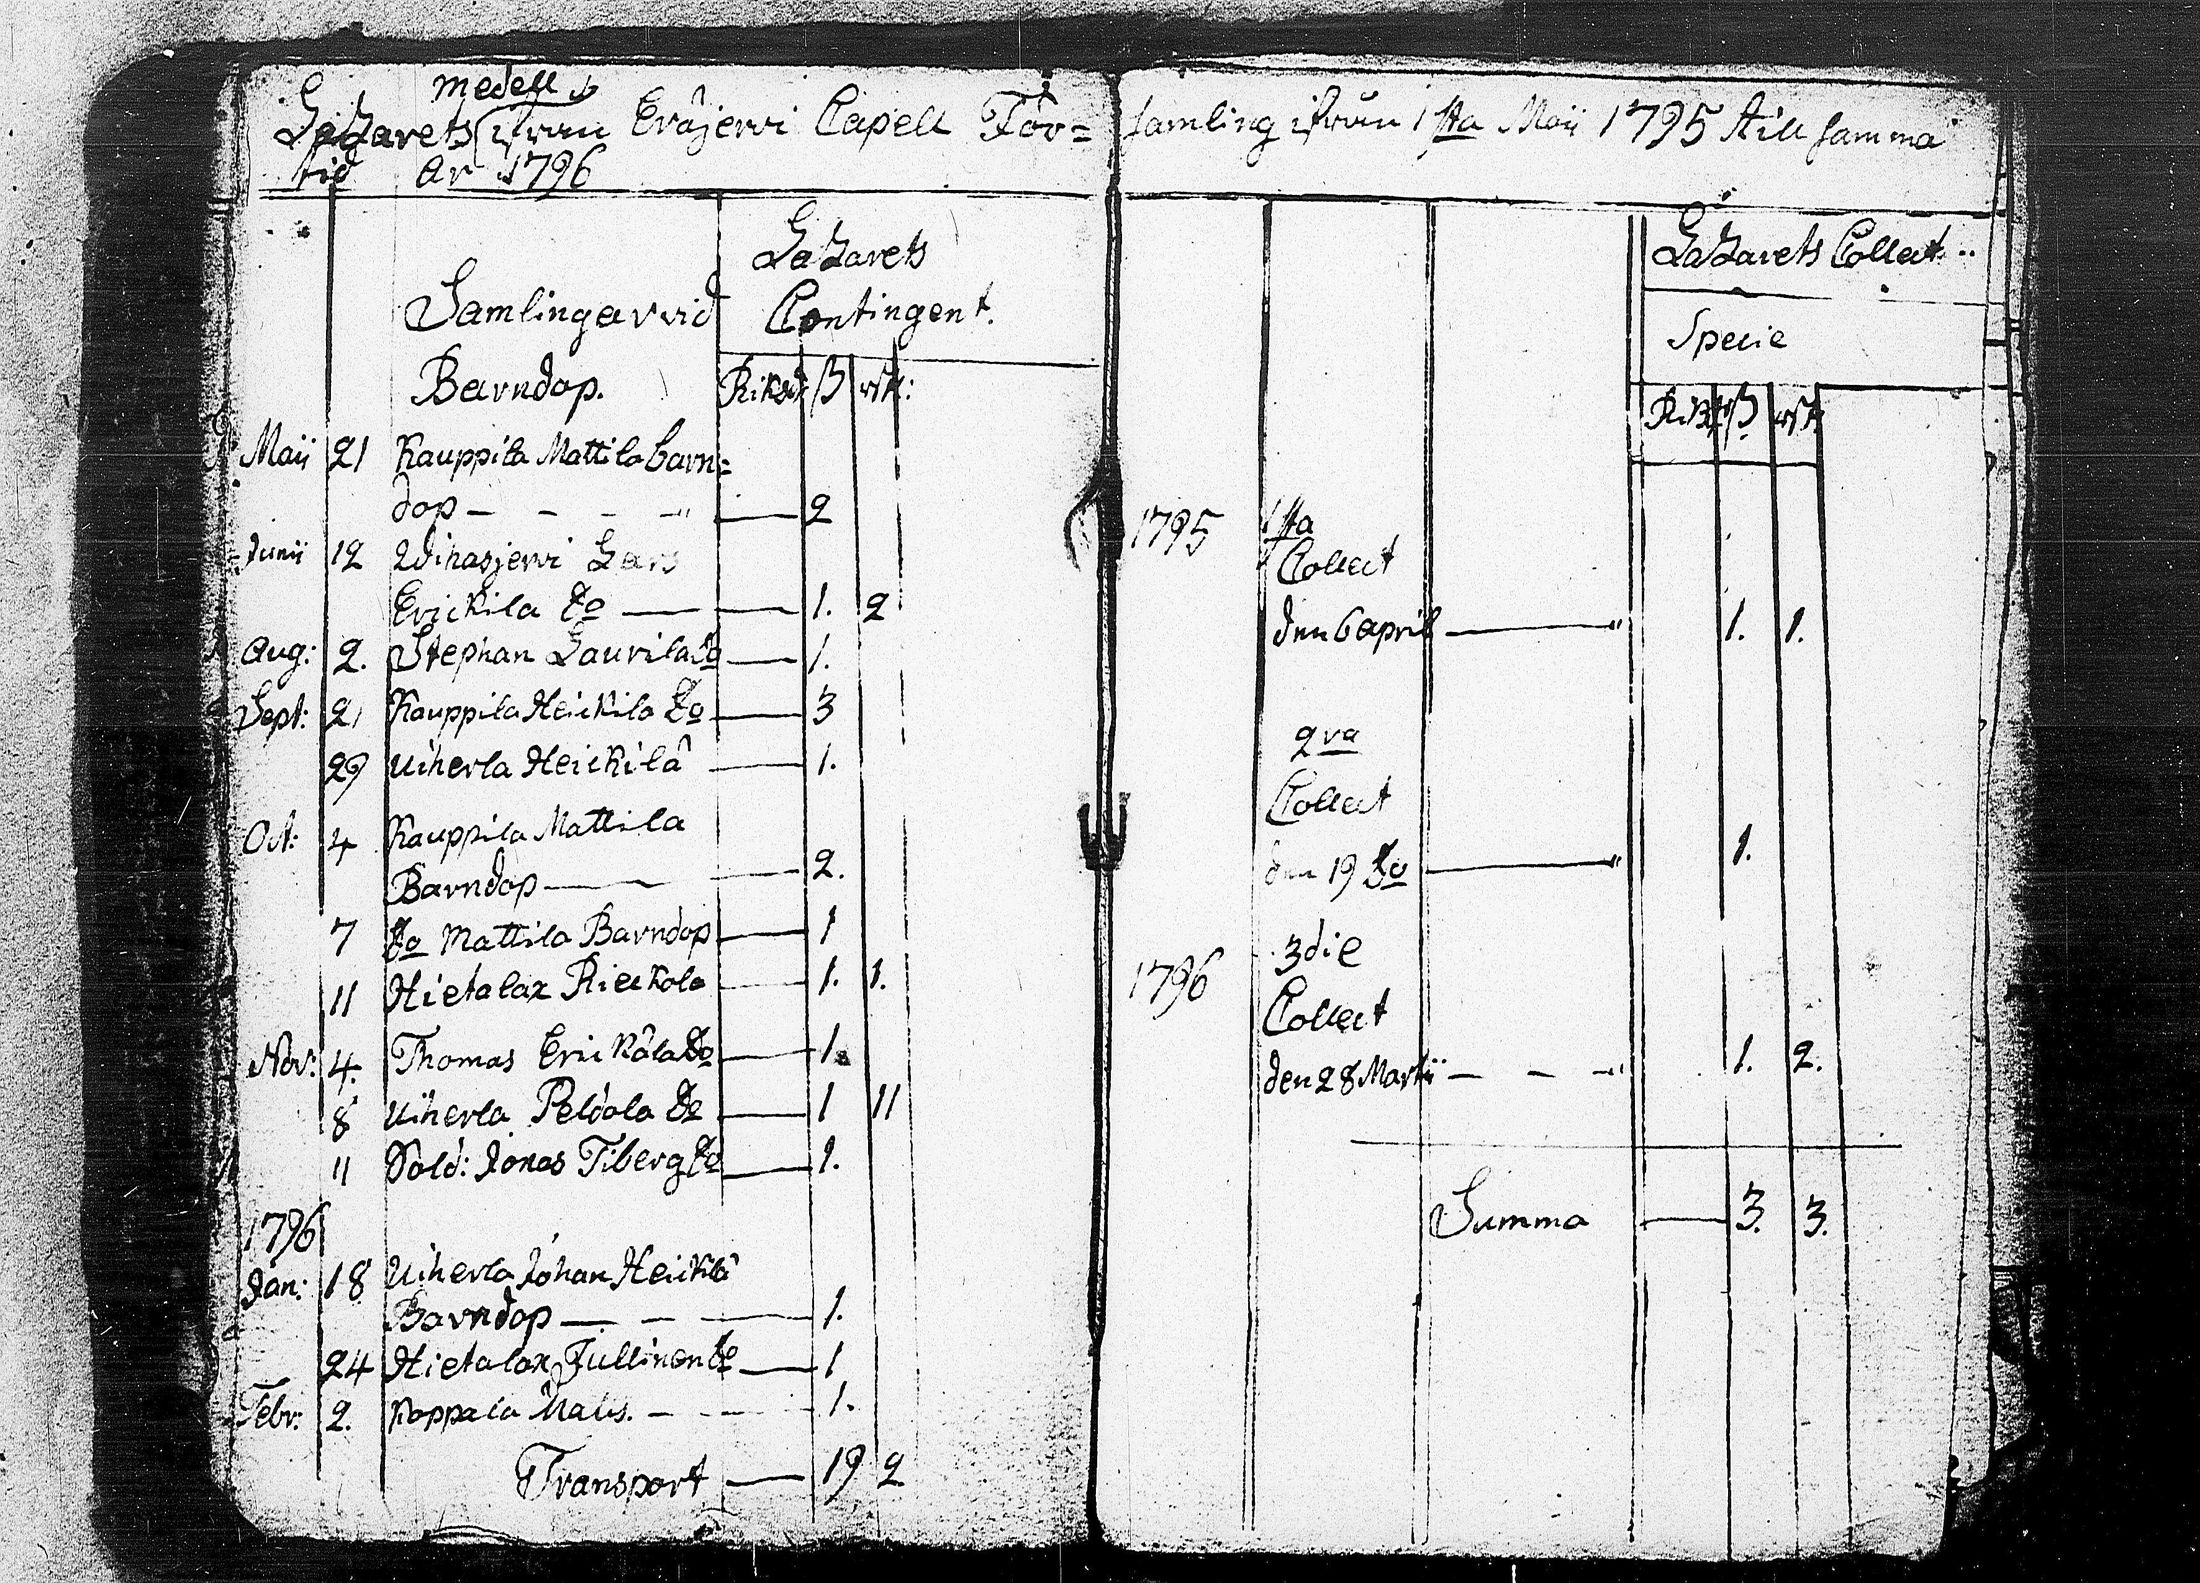 medell
Lazarets ifrån Eräjervi Capell För=
tid År 1796
Lazarets
Contingent.
Samlingar vid
Barndop.
Riksd. ß rst:
Maij 21 Kauppila Mattila barn=
dop — — — — " — 2
Junij 12 Wihasjervi Lars
Erickila Do — — 1. 2
Aug: 2. Stephan Laurila Do — 1.
Sept: 21 Kauppila Heickila Do — 3
29 Uiherla Heickilä — 1.
Oct: 4 Kauppila Mattila
Barndop — — 2.
7 Do Mattila Barndop — 1
11 Hietalax Rieckola — 1. 1.
Nov: 4. Thomas Erickäla Do — 1.
8 Uiherla Peldola Do — 1 11
11 Sold: Jonas Tiberg Do — 1.
1796
Jan: 18 Uiherla Johan Heickilä
Barndop — — — 1.
24 Hietalax Jullinen Do — 1
Febr: 2. Koppala Mats. — — — 1.
Transport — 19 2
samling ifrån 1sta Maij 1795 till samma
Lazarets Collect
Specie
Riksd. ß rst
1795 1sta
Collect
den 6 april — " 1. 1.
2ra
Collect
den 19 Do — " 1.
1796 3die
Collect
den 28 Martii — — — " 1. 2.
Summa — 3. 3.